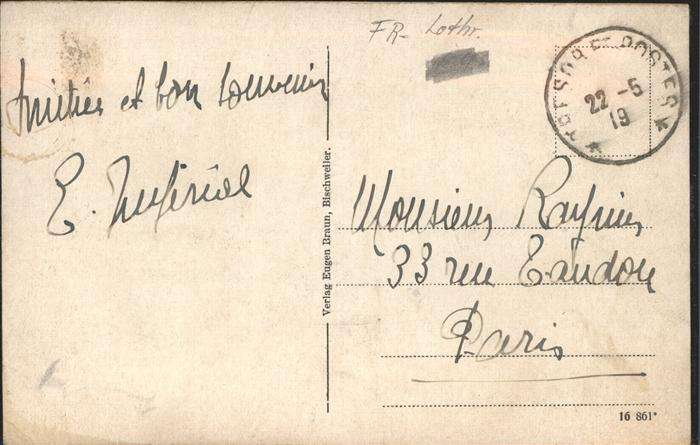 FR- Lothr.
TRESOR ET POSTES
22 -5
19
Amitiés et bon souvenir
E.
Verlag Eugen Braun, Bischweiler.
Monsieur
33 rue
Paris
16 861*